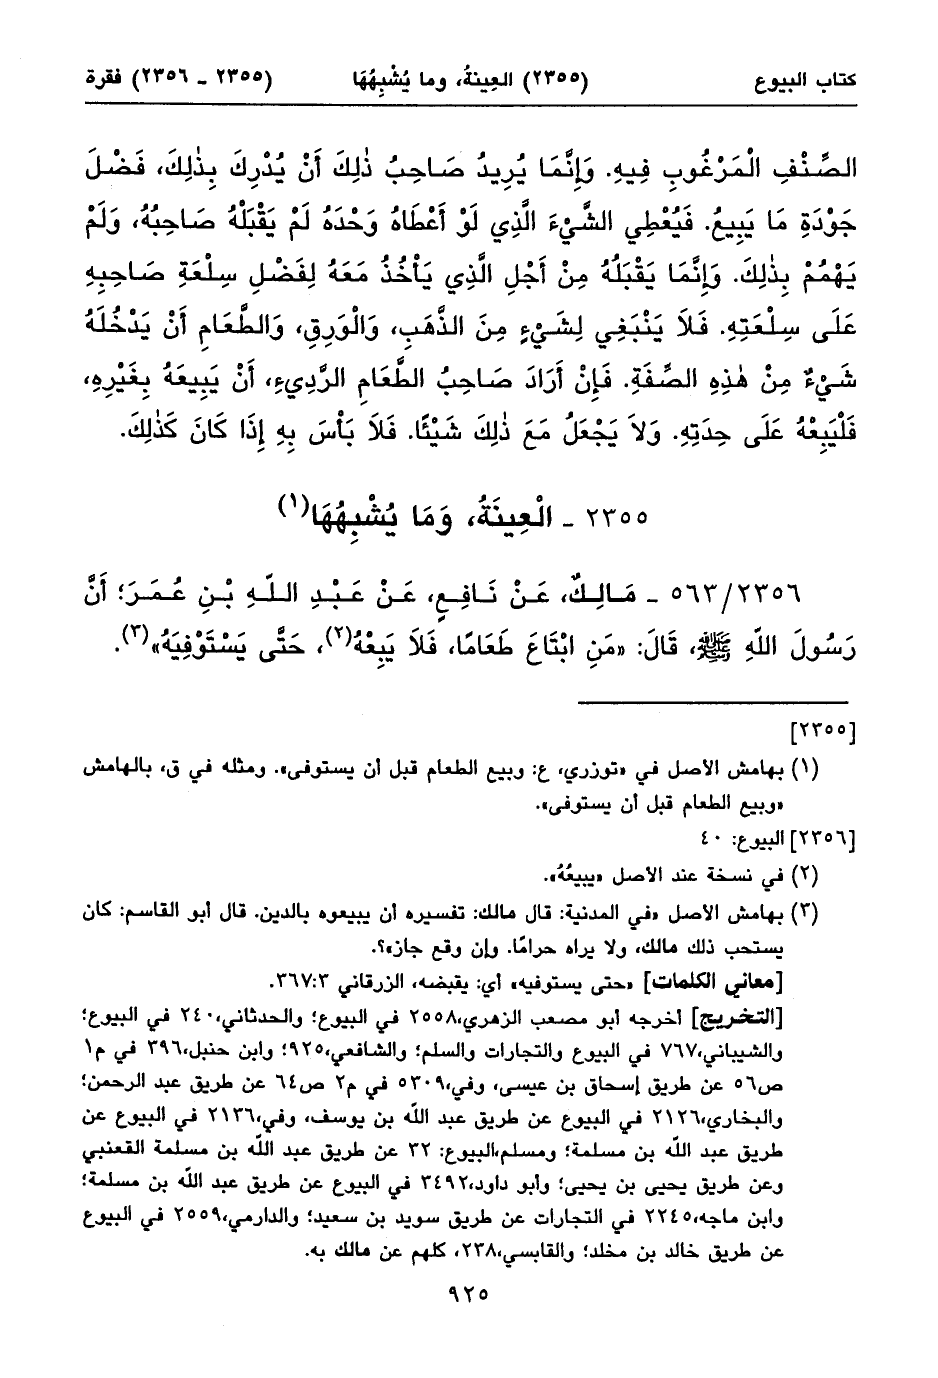 كتاب البيوع (٢٣٥٥) العِينةُ، وما يُشْبِهُهَا (٢٣٥٥ ـ ٢٣٥٦) فقرة
الصِّنْفِ الْمَرْغُوبِ فِيهِ. وَإِنَّمَا يُرِيدُ صَاحِبُ ذٰلِكَ أَنْ يُدْرِكَ بِذٰلِكَ، فَضْلَ
جَوْدَةِ مَا يَبِيعُ. فَيُعْطِي الشَّيْءَ الَّذِي لَوْ أَعْطَاهُ وَحْدَهُ لَمْ يَقْبَلْهُ صَاحِبُهُ، وَلَمْ
يَهْمُمْ بِذٰلِكَ. وَإِنَّمَا يَقْبَلُهُ مِنْ أَجْلِ الَّذِي يَأْخُذُ مَعَهُ لِفَضْلِ سِلْعَةِ صَاحِبِهِ
عَلَى سِلْعَتِهِ. فَلاَ يَنْبَغِي لِشَيْءٍ مِنَ الذَّهَبِ، وَالْوَرِقِ، وَالطَّعَامِ أَنْ يَدْخُلَهُ
شَيْءٌ مِنْ هٰذِهِ الصِّفَةِ. فَإِنْ أَرَادَ صَاحِبُ الطَّعَامِ الرَّدِيءِ، أَنْ يَبِيعَهُ بِغَيْرِهِ،
فَلْيَبِعْهُ عَلَى حِدَتِهِ. وَلاَ يَجْعَلُ مَعَ ذٰلِكَ شَيْئًا. فَلاَ بَأْسَ بِهِ إِذَا كَانَ كَذٰلِكَ.
٢٣٥٥ ـ الْعِينَةُ، وَمَا يُشْبِهُهَا(١)
٥٦٣/٢٣٥٦ ـ مَالِكٌ، عَنْ نَافِعٍ، عَنْ عَبْدِ اللَّهِ بْنِ عُمَرَ؛ أَنَّ
رَسُولَ اللَّهِ ﷺ، قَالَ: «مَنِ ابْتَاعَ طَعَامًا، فَلاَ يَبِعْهُ(٢)، حَتَّى يَسْتَوْفِيَهُ»(٣).
[٢٣٥٥]
(١) بهامش الأصل في «توزري، ع: وبيع الطعام قبل أن يستوفى». ومثله في ق، بالهامش
«وبيع الطعام قبل أن يستوفى».
[٢٣٥٦] البيوع: ٤٠
(٢) في نسخة عند الأصل «يبيعُهُ».
(٣) بهامش الأصل «في المدنية: قال مالك: تفسيره أن يبيعوه بالدين. قال أبو القاسم: كان
يستحب ذلك مالك، ولا يراه حرامًا. وإن وقع جاز»؟.
[معاني الكلمات] «حتى يستوفيه» أي: يقبضه، الزرقاني ٣٦٧:٣.
[التخريج] أخرجه أبو مصعب الزهري،٢٥٥٨ في البيوع؛ والحدثاني،٢٤٠ في البيوع؛
والشيباني،٧٦٧ في البيوع والتجارات والسلم؛ والشافعي،٩٢٥؛ وابن حنبل،٣٩٦ في م١
ص٥٦ عن طريق إسحاق بن عيسى، وفي،٥٣٠٩ في م٢ ص٦٤ عن طريق عبد الرحمن؛
والبخاري،٢١٢٦ في البيوع عن طريق عبد الله بن يوسف، وفي،٢١٣٦ في البيوع عن
طريق عبد الله بن مسلمة؛ ومسلم،البيوع: ٣٢ عن طريق عبد الله بن مسلمة القعنبي
وعن طريق يحيى بن يحيى؛ وأبو داود،٣٤٩٢ في البيوع عن طريق عبد الله بن مسلمة؛
وابن ماجه،٢٢٤٥ في التجارات عن طريق سويد بن سعيد؛ والدارمي،٢٥٥٩ في البيوع
عن طريق خالد بن مخلد؛ والقابسي،٢٣٨، كلهم عن مالك به.
٩٢٥